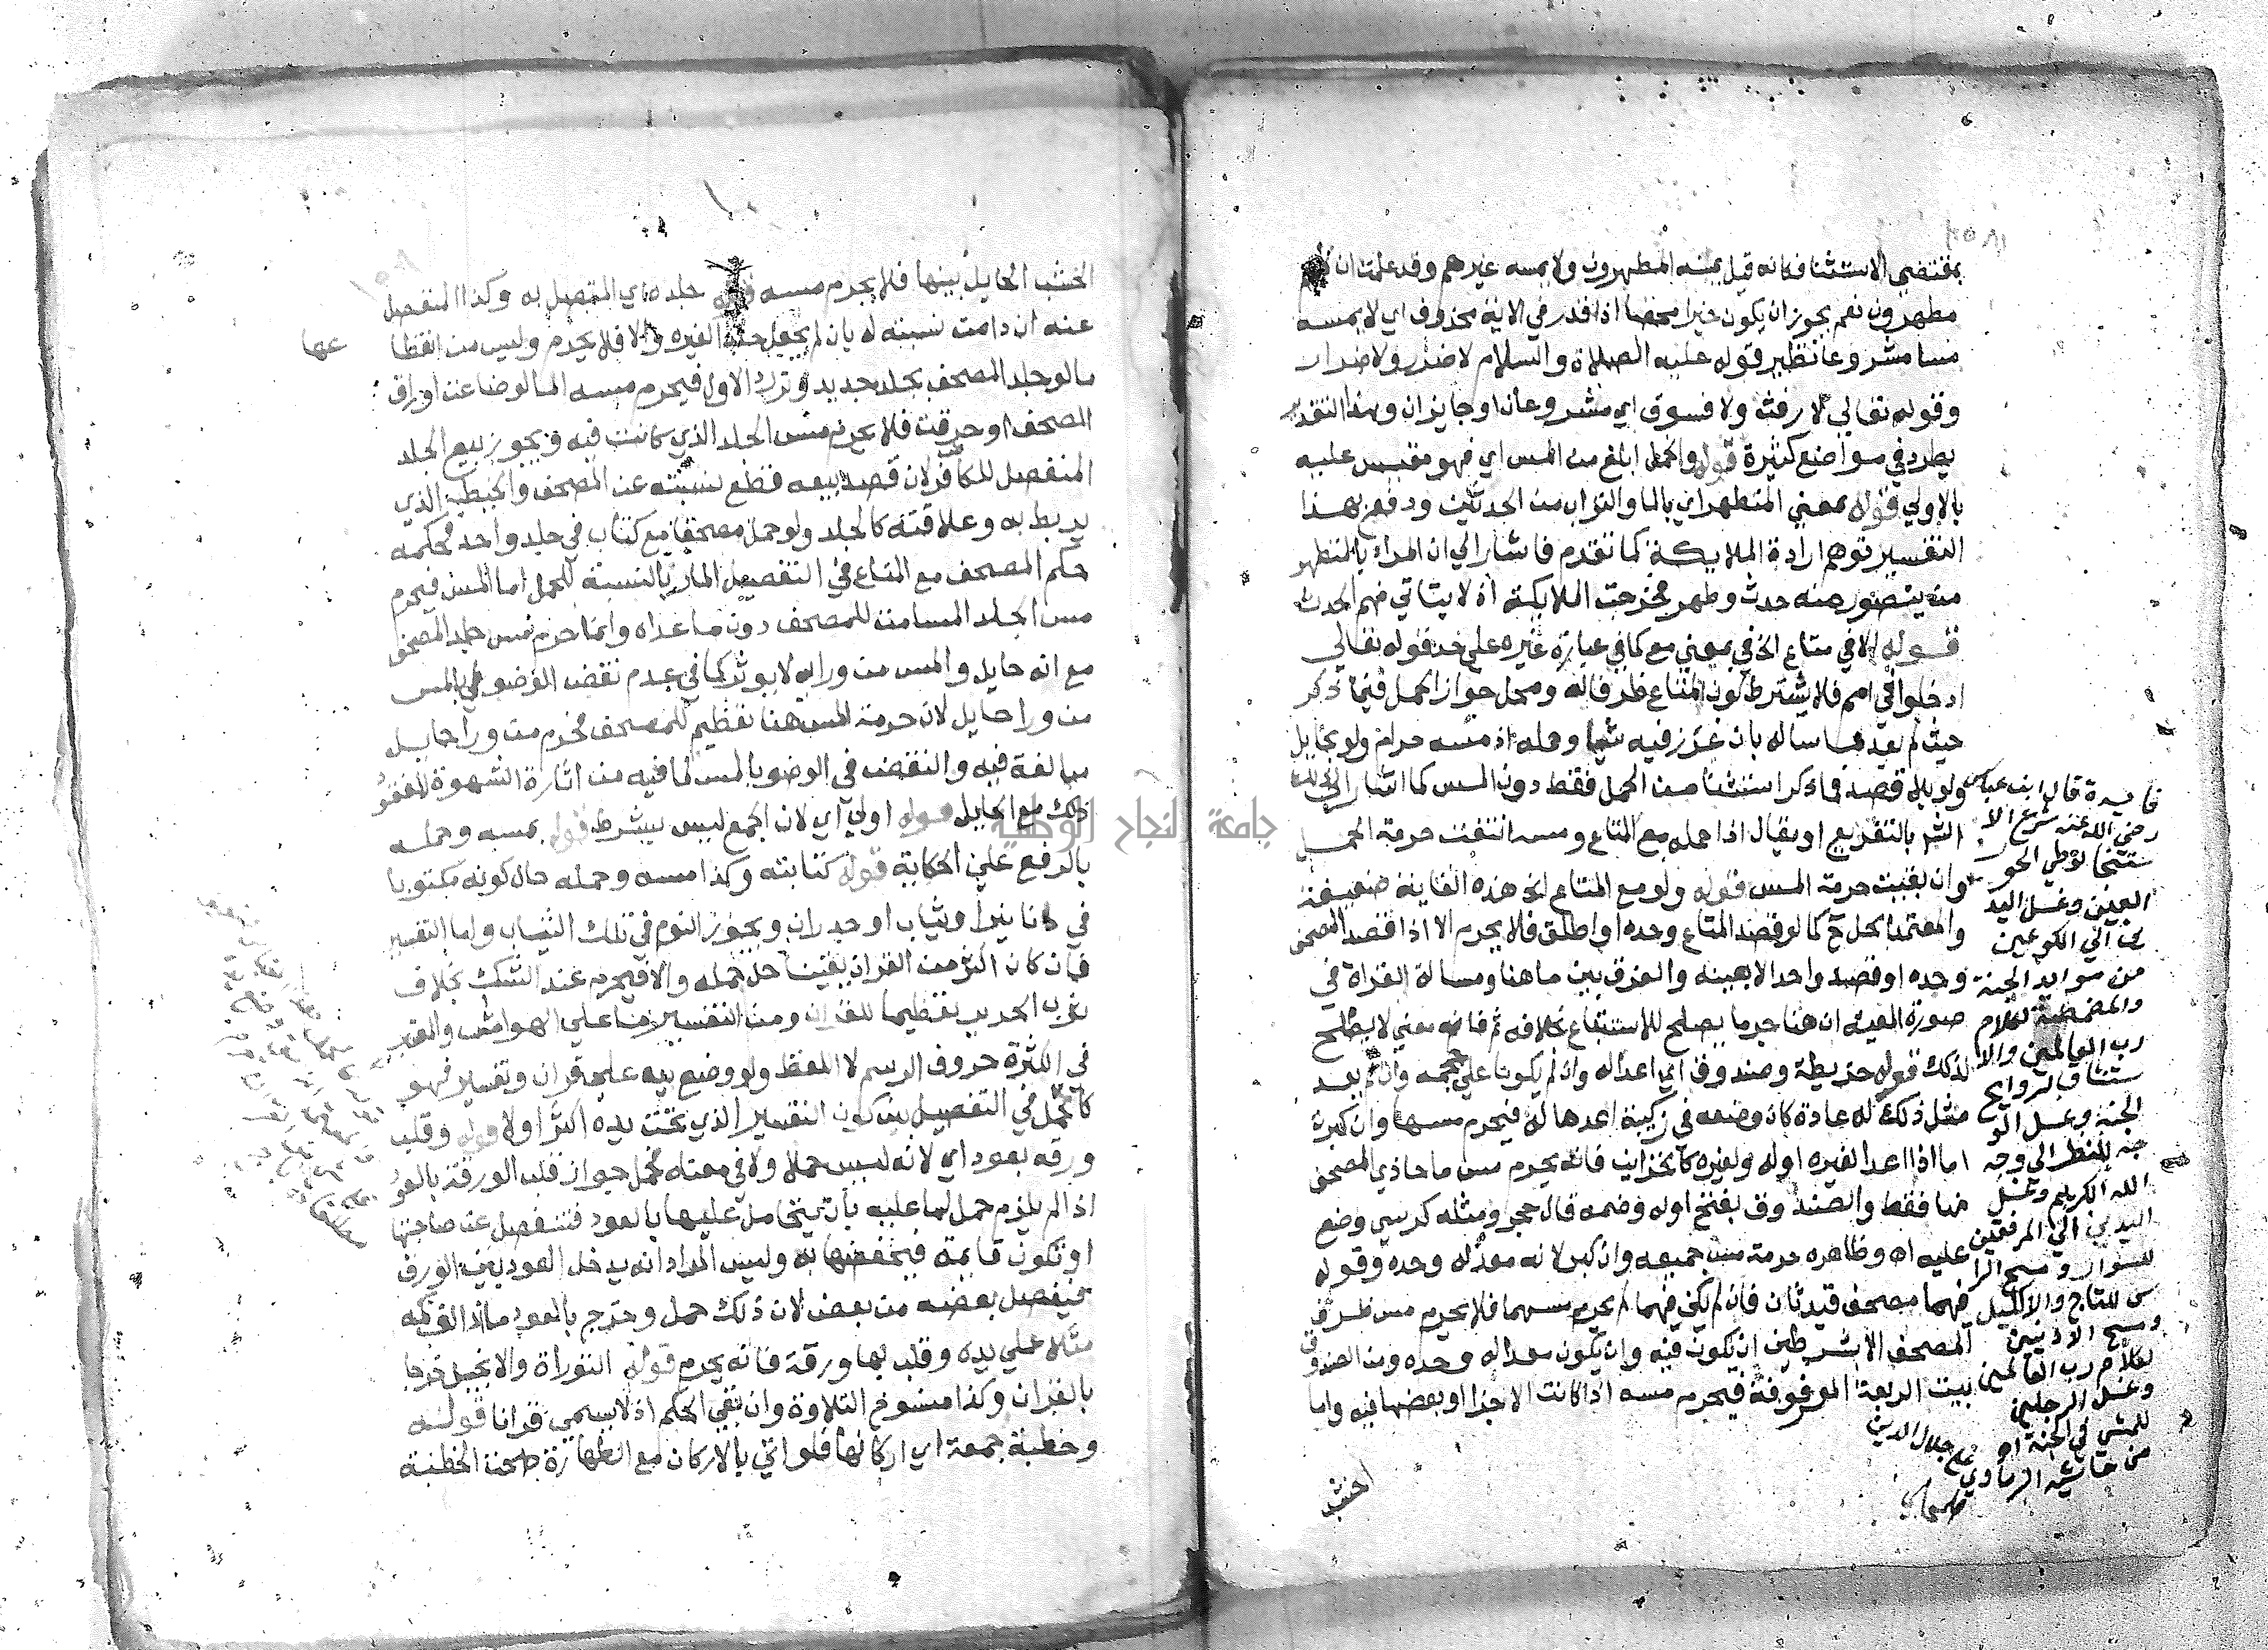 بمقتضي الاستثنا فكانه قيل يمسه المطهرون ولا يمسه غيرهم وقد علمت ان
مطهرون نعم يجوز ان يكون خبرا محضا اذا قدر في الاية محذوف اي لا يمسه
مسا مشروعا نظير قوله عليه الصلاة والسلام لا ضرر ولا ضرار
وقوله تعالي لا رفث ولا فسوق اي مشروعان او جايزان وهذا التقدير
يطرد في مواضع كثيرة قوله والحمل ابلغ من المس اي فهو مقيس عليه
بالاولي قوله بمعني المتطهر اي بالما والتراب من الحدثين ودفع بهذا
التفسير توهم ارادة الملايكة كما تقدم فاشار الي ان المراد بالمتطهر
من يتصور منه حدث وطهر فخرجت الملايكة اذ لا يتاتي فيهم الحدث
قوله الا في متاع الخ في بمعني مع كما في عبارة غيره علي حد قوله تعالي
ادخلوا في امم فلا يشترط كون المتاع ظرفا له ومحل جواز الحمل فيما ذكر
حيث لم يعد ماسا له بان غرز فيه شيا وحمله اذ مسه حرام ولو بحايل
ولو بلا قصد فما ذكر استثنا من الحمل فقط دون المس كما اشار الي ذلك
الشر بالتفريع او يقال اذا حمله مع المتاع ومسه انتفت حرمة الحمل
وان بقيت حرمة المس قوله ولو مع المتاع الخ هذه الغاية ضعيفة
والمعتمد الحل ح كما لو قصد المتاع وحده او اطلق فلا يحرم الا اذا قصد المصحف
وحده او قصد واحدا لا بعينه والفرق بين ما هنا ومسالة القراة في
صورة المعية ان هنا جرما يصلح للاستتباع بخلافه ثم فانه معني لا يصلح
لذلك قوله خريطة وصندوق اي اعدا له وان لم يكونا علي حجمه وان لم يعد
مثل ذلك له عادة كان وضعه في زكيبة اعدها له فيحرم مسها وان كبرت
اما اذا اعدا لغيره او له ولغيره كالخزاين فانه يحرم مس ما حاذي المصحف
منها فقط والصندوق بفتح اوله وضمه قال حجر ومثله كرسي وضع
عليه اه وظاهره حرمة مس جميعه وان كبر لانه معد له وحده وقوله
فيهما مصحف قيد ثان فان لم يكن فيهما لم يحرم مسهما فلا يحرم مس ظرف
المصحف الا بشرطين ان يكون فيه وان يكون معدا له وحده ومن الصندوق
بيت الربعة الموقوفة فيحرم مسه اذا كانت الاجزا او بعضها فيه واما
الخشب
فايدة قال ابن عباس
رضي الله عنه شرع الا
ستنجا لوطي الحور
العين وغسل اليد
ين الي الكوعين
من موايد الجنة
والمضمضة لكلام
رب العالمين والا
ستنشاق لروايح
الجنة وغسل الو
جه للنظر الي وجه
الله الكريم وغسل
اليدين الي المرفقين
للسوار ومسح الرا
س للتاج والاكليل
ومسح الاذنين
لكلام رب العالمين
وغسل الرجلين
للمشي في الجنة اه
من حاشية الرحماوي
علي جلال الدين
الخشب الحايل بينها فلا يحرم مسه قوله جلده اي المتصل به وكذا المنفصل
عنه ان دامت نسبته له بان لم يجعل جلدا لغيره والا فلا يحرم وليس من انقطا
عها
ما لو جلد المصحف بجلد جديد وترك الاول فيحرم مسه اما لو ضاعت اوراق
المصحف او حرقت فلا يحرم مس الجلد الذي كانت فيه ويجوز بيع الجلد
المنفصل للكافر لان قصد بيعه قطع نسبته عن المصحف والخيط الذي
يربط به وعلاقته كالجلد ولو حمل مصحفا مع كتاب في جلد واحد فحكمه
حكم المصحف مع المتاع في التفصيل المار بالنسبة للحمل اما المس فيحرم
مس الجلد المسامت للمصحف دون ما عداه وانما حرم مس جلد المصحف
مع انه حايل والمس من ورايه لا يوثر كما في عدم نقض الوضو بالمس
من ورا حايل لان حرمة المس هنا تعظيم للمصحف فحرم من ورا حايل
مبالغة فيه والنقض في الوضو بالمس لما فيه من اثارة الشهوة المفقود
ذلك مع الحايل قوله اولي اي لان الجمع ليس بشرط قوله بمسه وحمله
بالرفع علي الحكاية قوله كتابته وكذا مسه وحمله حال كونه مكتوبا
في دنانير او ثياب او جدران ويجوز النوم في تلك الثياب واما التفسير
فان كان اكثر من القران يقينا حل حمله والا فيحرم عند الشك بخلاف
ثوب الحرير تعظيما للقران ومن التفسير ما علي الهوامش والعبرة
في الكثرة حروف الرسم لا اللفظ ولو وضع يده علي قران وتفسير فهو
كالحمل في التفصيل بين كون التفسير الذي تحت يده اكثر او لا قوله وقلب
ورقه بعود اي لانه ليس حملا ولا في معناه محل جواز قلب الورقة بالعود
اذا لم يلزم حمل لما عليه بان يتحامل عليها بالعود فتنفصل عن صاحبتها
او تكون قايمة فيخفضها به وليس المراد انه يدخل العود بين الورق
فينفصل بعضه من بعض لان ذلك حمل وخرج بالعود ما اذا لف كمه
مثلا علي يده وقلب بها ورقة فانه يحرم قوله التوراة والانجيل خرجا
بالقران وكذا منسوخ التلاوة وان بقي الحكم اذ لا يسمي قرانا قوله
وخطبة جمعة اي اركانها فلو اتي بالاركان مع الطهارة صحت الخطبة
جامعة النجاح الوطنية